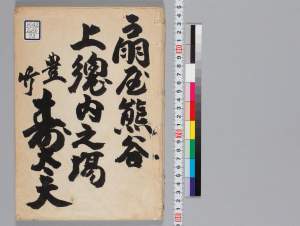 扇屋熊谷
上總内之場
豊竹
寿太夫